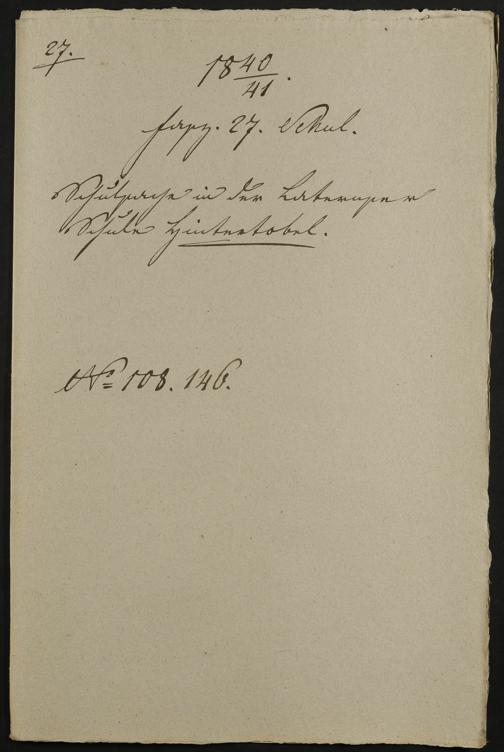 27.
18 40/41.
Fasz. 27. Schul.
Schulsache in der Laternser
Schule Hintertobel.
No 108. 146.